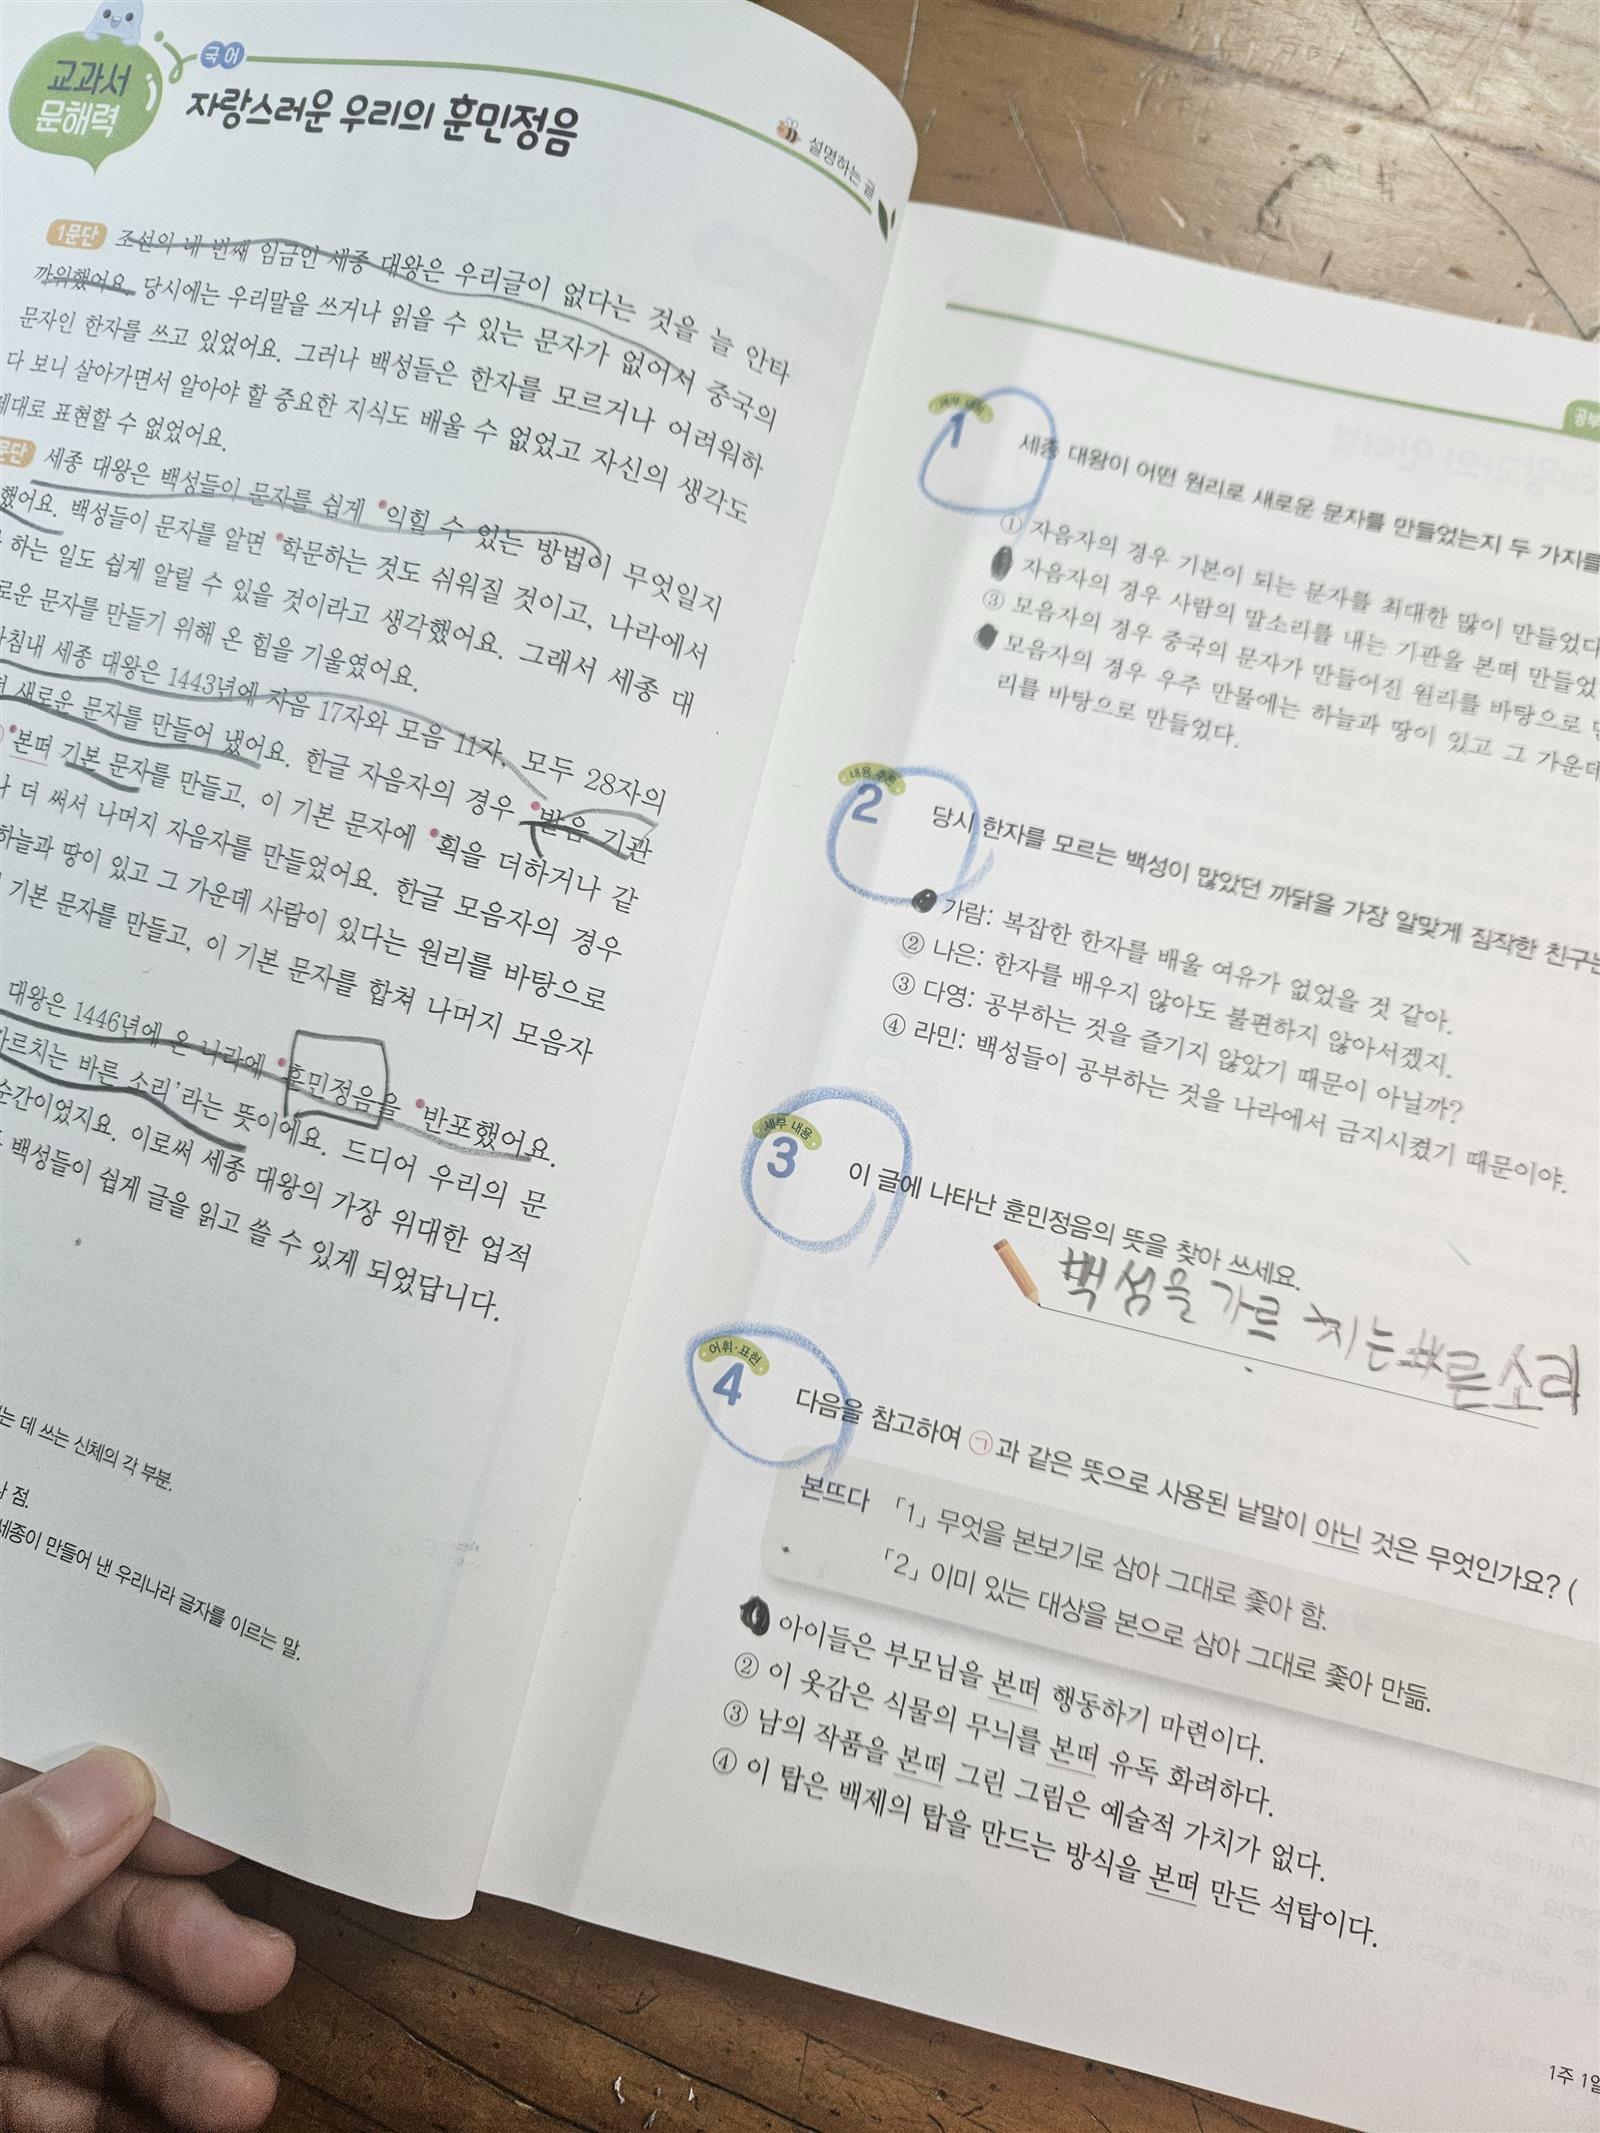 교과서
문해력
국어
자랑스러운 우리의 훈민정음
설명하는 글
1문단 조선의 네 번째 임금인 세종 대왕은 우리글이 없다는 것을 늘 안타
까워했어요. 당시에는 우리말을 쓰거나 읽을 수 있는 문자가 없어서 중국의
문자인 한자를 쓰고 있었어요. 그러나 백성들은 한자를 모르거나 어려워하
다 보니 살아가면서 알아야 할 중요한 지식도 배울 수 없었고 자신의 생각도
제대로 표현할 수 없었어요.
문단 세종 대왕은 백성들이 문자를 쉽게 익힐 수 있는 방법이 무엇일지
했어요. 백성들이 문자를 알면 학문하는 것도 쉬워질 것이고, 나라에서
하는 일도 쉽게 알릴 수 있을 것이라고 생각했어요. 그래서 세종 대
로운 문자를 만들기 위해 온 힘을 기울였어요.
침내 세종 대왕은 1443년에 자음 17자와 모음 11자, 모두 28자의
새로운 문자를 만들어 냈어요. 한글 자음자의 경우 발음 기관
본떠 기본 문자를 만들고, 이 기본 문자에 획을 더하거나 같
더 써서 나머지 자음자를 만들었어요. 한글 모음자의 경우
하늘과 땅이 있고 그 가운데 사람이 있다는 원리를 바탕으로
기본 문자를 만들고, 이 기본 문자를 합쳐 나머지 모음자
대왕은 1446년에 온 나라에 훈민정음을 반포했어요.
가르치는 바른 소리'라는 뜻이에요. 드디어 우리의 문
순간이었지요. 이로써 세종 대왕의 가장 위대한 업적
백성들이 쉽게 글을 읽고 쓸 수 있게 되었답니다.
는 데 쓰는 신체의 각 부분.
점.
세종이 만들어 낸 우리나라 글자를 이르는 말.
공부
세부 내용
1 세종 대왕이 어떤 원리로 새로운 문자를 만들었는지 두 가지를
① 자음자의 경우 기본이 되는 문자를 최대한 많이 만들었다
자음자의 경우 사람의 말소리를 내는 기관을 본떠 만들었
③ 모음자의 경우 중국의 문자가 만들어진 원리를 바탕으로
모음자의 경우 우주 만물에는 하늘과 땅이 있고 그 가운데
리를 바탕으로 만들었다.
내용 추론
2 당시 한자를 모르는 백성이 많았던 까닭을 가장 알맞게 짐작한 친구는
가람: 복잡한 한자를 배울 여유가 없었을 것 같아.
② 나은: 한자를 배우지 않아도 불편하지 않아서겠지.
③ 다영: 공부하는 것을 즐기지 않았기 때문이 아닐까?
④ 라민: 백성들이 공부하는 것을 나라에서 금지시켰기 때문이야.
세부 내용
3 이 글에 나타난 훈민정음의 뜻을 찾아 쓰세요.
백성을 가르치는 바른소리
어휘·표현
4 다음을 참고하여 ㉠과 같은 뜻으로 사용된 낱말이 아닌 것은 무엇인가요? (
본뜨다 「1」 무엇을 본보기로 삼아 그대로 좇아 함.
「2」 이미 있는 대상을 본으로 삼아 그대로 좇아 만듦.
아이들은 부모님을 본떠 행동하기 마련이다.
② 이 옷감은 식물의 무늬를 본떠 유독 화려하다.
③ 남의 작품을 본떠 그린 그림은 예술적 가치가 없다.
④ 이 탑은 백제의 탑을 만드는 방식을 본떠 만든 석탑이다.
1주 1일